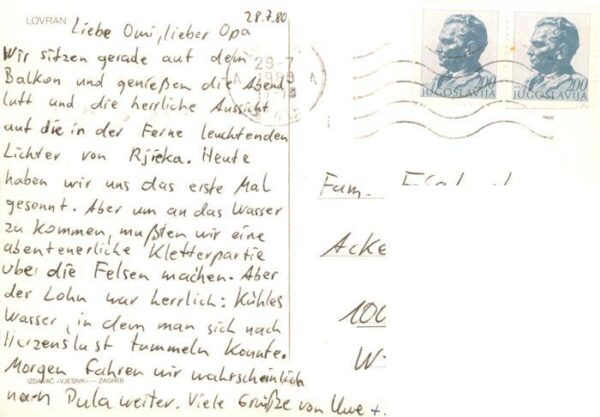 LOVRAN
28.7.80
Liebe Omi, lieber Opa
Wir sitzen gerade auf dem
Balkon und genießen die Abend
luft und die herrliche Aussicht
auf die in der Ferne leuchtenden
Lichter von Rjieka. Heute
haben wir uns das erste Mal
gesonnt. Aber um an das Wasser
zu kommen, mußten wir eine
abenteuerliche Kletterpartie
über die Felsen machen. Aber
der Lohn war herrlich: Kühles
Wasser, in dem man sich nach
Herzenslust tummeln konnte.
Morgen fahren wir wahrscheinlich
nach Pula weiter. Viele Grüße von Uwe +.
IZDAVAČ «VJESNIK» — ZAGREB
29-7
200
JUGOSLAVIJA
200
JUGOSLAVIJA
Fam.
Acke
100
W-